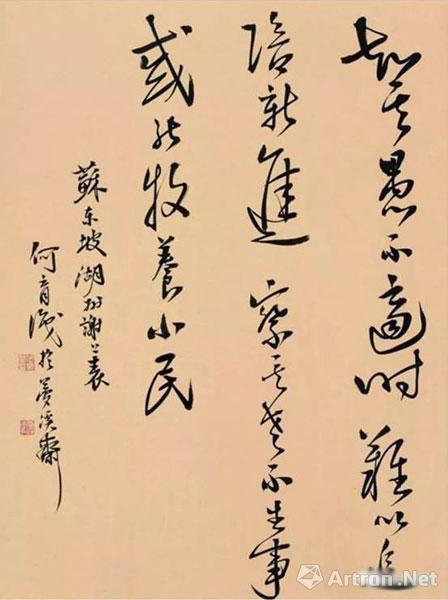 知其愚不適時難以追
陪新進察其老不生事
或能牧養小民
蘇东坡湖州謝上表
何育於夢溪齋
Artron.Net